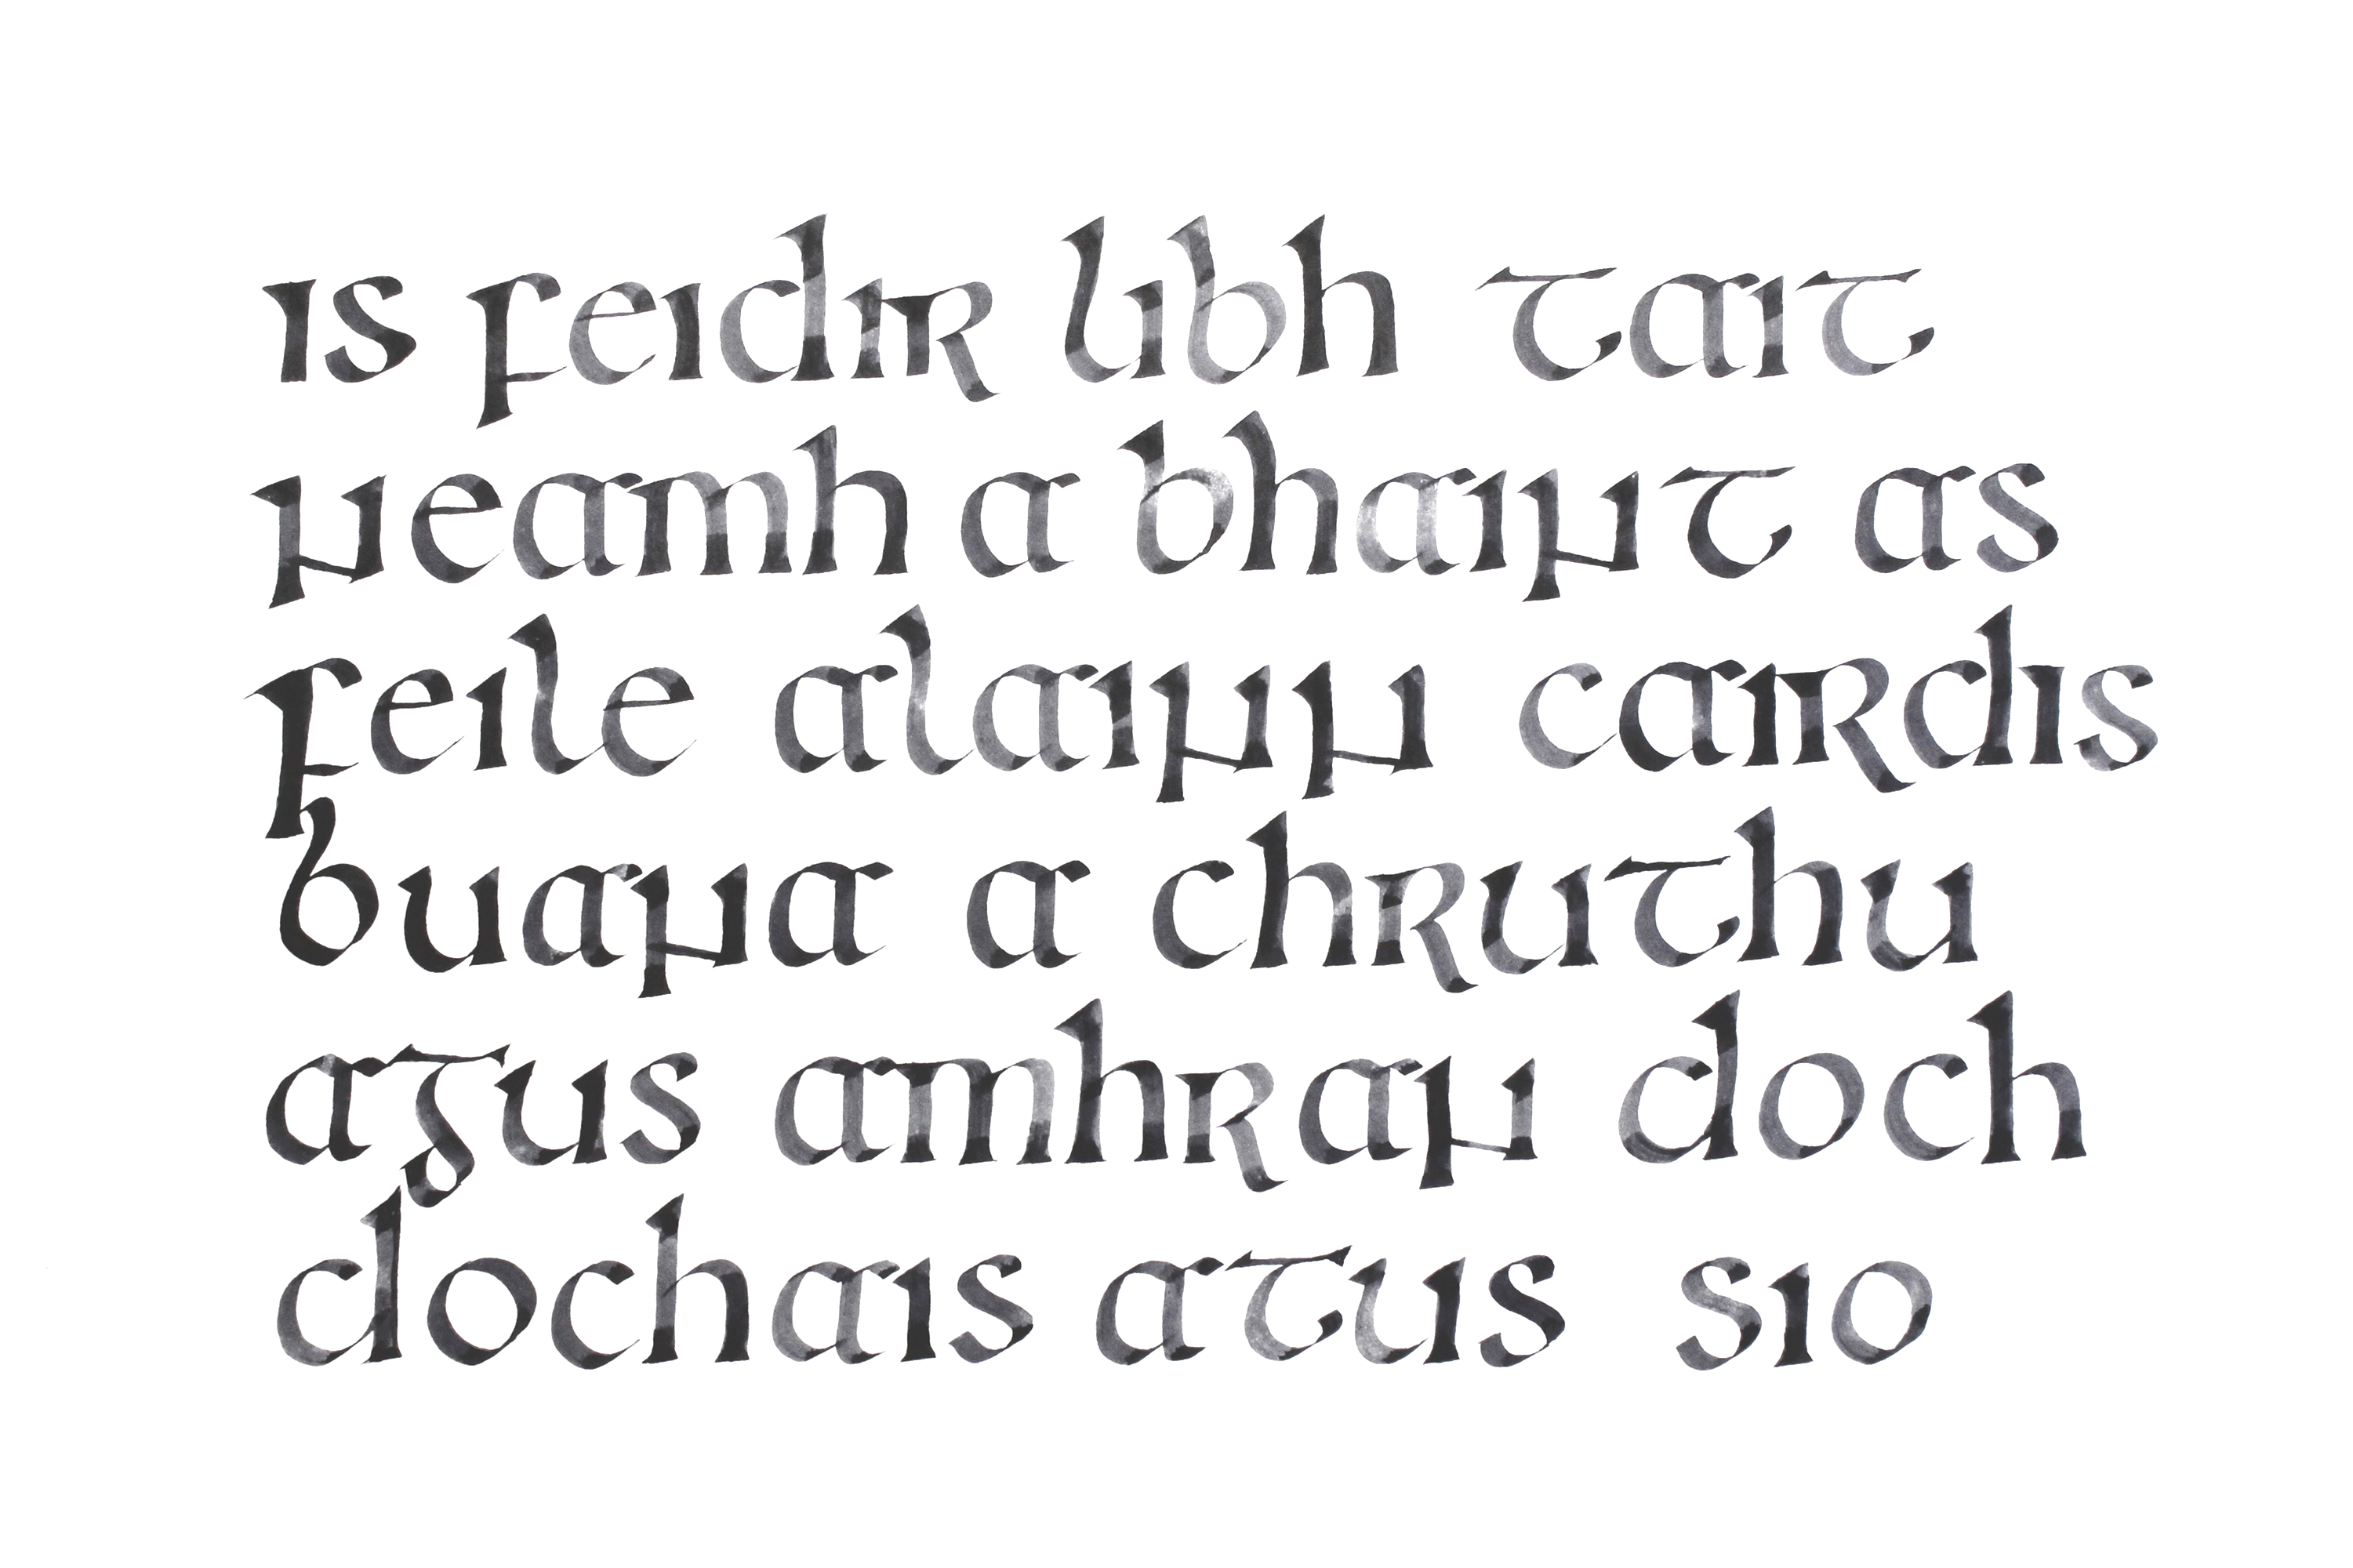 is feidir libh tait
neamh a bhaint as
feile alainn cairdis
buana a chruthu
agus amhran doch
dochais atus sio